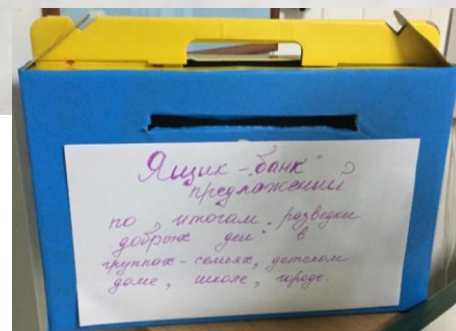 Ящик-"банк"
предложений
по итогам разведки
добрых дел в
группах-семьях, детском
доме, школе, городе.